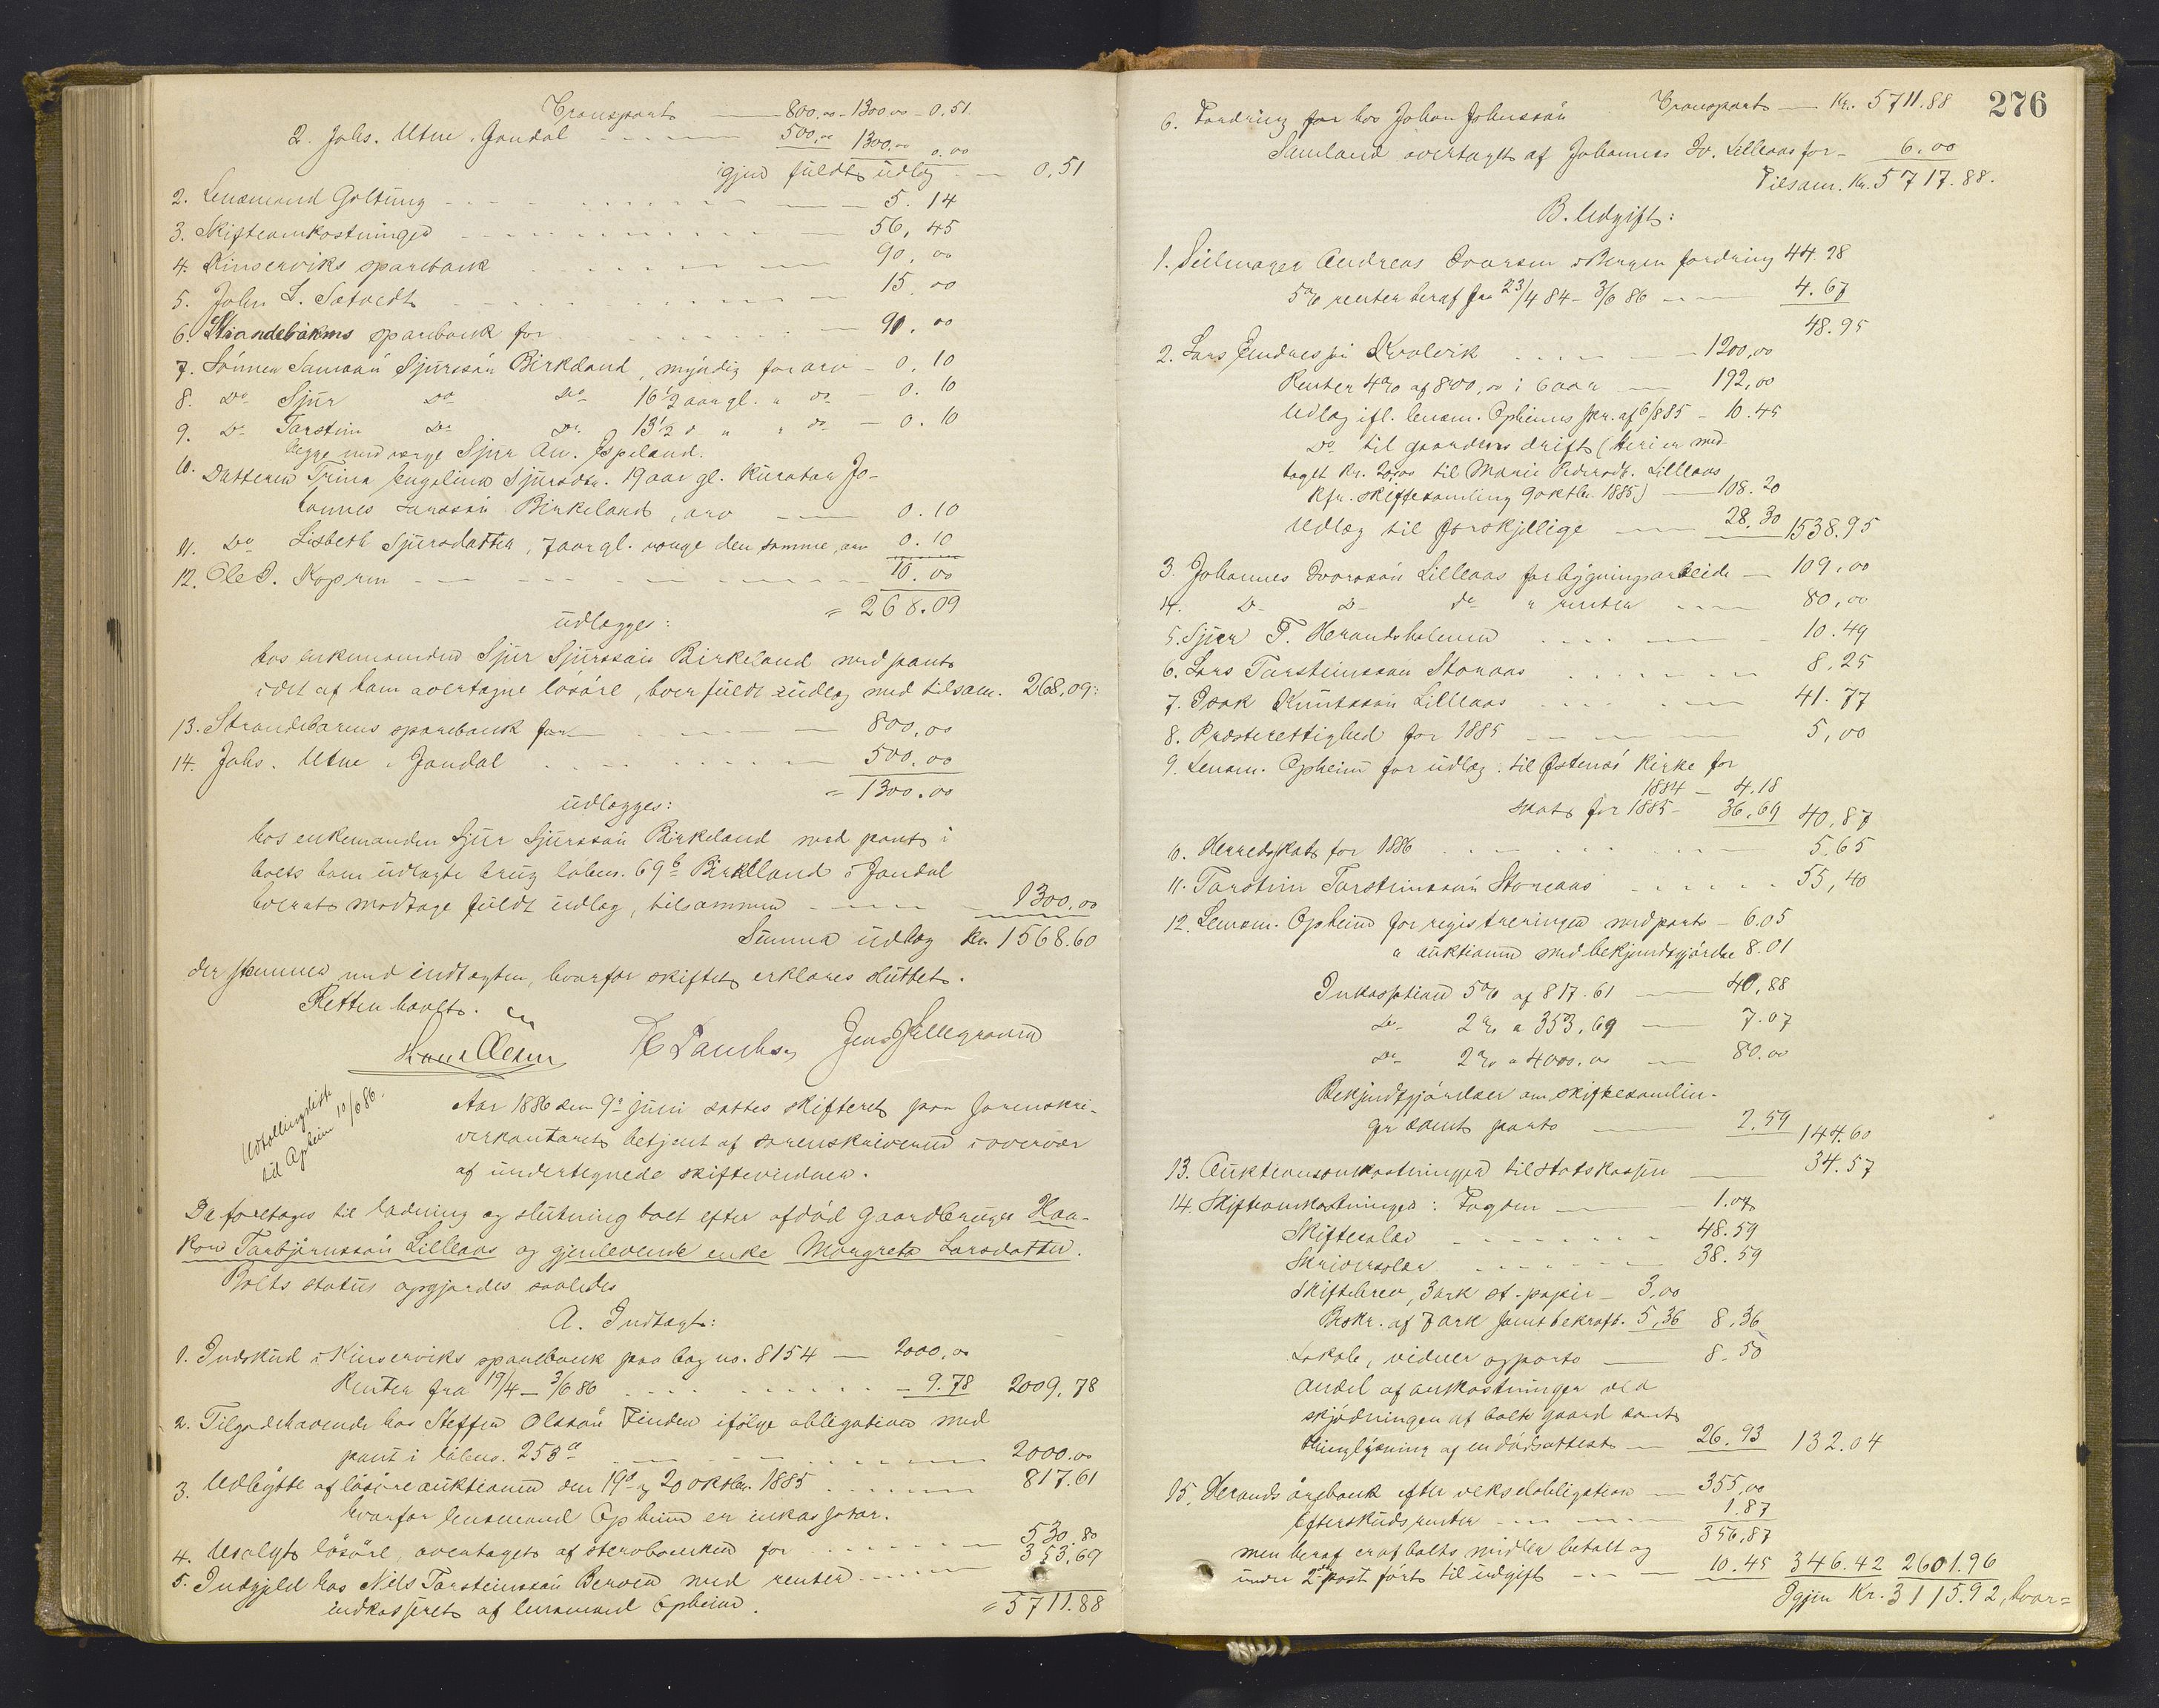 Transport — 800.00 - 1300.00 - 0.51
2. Johs. Utne. Jondal — 500.00 1300.00 0.00
igjen fuldt udlæg — 0.51
2. Lensmand Goltung — 5.14
3. Skifteomkostninger — 56.45
4. Kinserviks sparebank — 90.00
5. John L. Sætvedt — 15.00
6. Strandebarms sparebank for — 91.00
7. Sønnen Samson Sjursson Birkeland, myndig for arv — 0.10
8. Do Sjur Do Do 16 1/2 aar gl. " Do — 0.10
9. Do Torstein Do Do 13 1/2 d " " Do — 0.10
begge med værge Sjur An. Espeland.
10. Datteren Trina Engelina Sjursdtr. 19 aar gl. kurator Jo-
hannes Larsson Birkeland, arv — 0.10
11. Do Lisbeth Sjursdatter, 7 aar gl. værge den samme, arv 0.10
12. Ole D. Koprun — 10.00
= 268.09
udlægges:
hos enkemanden Sjur Sjursson Birkeland med pant
i det af ham overtagne løsøre, hver fuldt udlæg med tilsam. 268,09:
13. Strandebarms sparebank for — 800,00
14. Johs. Utne i Jondal — 500.00
= 1300.00
udlægges:
hos enkemanden Sjur Sjursson Birkeland med pant i
boets ham udlagte brug løbenr. 69 b Birkeland i Jondal
hvorat modtage fuldt udlæg, tilsammen — 1300.00
Summa udlæg Kr. 1568.60
der stemmer med indtægten, hvorfor skiftet erklæres sluttet.
Retten hævet.
Udtællingsliste
til Opheim 10/6 86.
Aar 1886 den 9de juni sattes skifteret paa sorenskri-
verkontoret betjent af sorenskriveren i overvær
af undertegnede skiftevidner.
Da foretages til ladning og slutning boet efter afdød gaardbruger Haa-
kon Torbjørnsson Lilleaas og gjenlevende enke Margreta Larsdatter.
Boets status opgjordes saaledes
A. Indtægt:
1. Indskud i Kinserviks sparebank paa bog no. 8154 — 2000,00
Renter fra 19/4 - 3/6 86 — 9.78 2009,78
2. Tilgodehavende hos Steffen Olsson Tinden ifølge obligation med
pant i løbenr. 253 a — 2000.00
3. Udbytte af løsøreauktionen den 19de og 20 oktbr. 1885 — 817.61
hvorfor lensmand Opheim er inkassator.
4. Usolgt løsøre, overtaget af sterboenken for — 530.80
5. Indgjeld hos Nels Torsteinsson Berven med renter — 353,69
indkasseret af lensmand Opheim.
= 5711.88
276
Transport — Kr. 5711.88
6. Fordring for hos Johan Johnsson
Samland overtaget af Johannes Iv. Lilleaas for — 6.00
Tilsam. Kr. 5717.88.
B. Udgift:
1. Seilmager Andreas Ivarsen i Bergen fordring 44.28
5% renter heraf fra 23/4 84 - 3/6 86 — 4.67
48.95
2. Lars Endresson Kvalvik — 1200,00
Renter 4% af 800,00 i 6 aar — 192,00
Udlæg ifl. lensm. Opheims skr. af 6/8 85 — 10.45
Do til gaardens drift (heri er med
taget Kr. 20,00 til Marie Pedersdt. Lilleaas
kfr. skiftesamling 9 oktbr. 1885) — 108.20
Udlæg til forskjellige — 28.30 1538.95
3. Johannes Ivarsson Lilleaas for bygningsarbeide — 109,00
4. Do Do do " renter — 80,00
5. Sjur T. Herandsholmen — 10.49
6. Lars Torsteinsson Storaas — 8.25
7. Isak Knutsson Lilleaas — 41.77
8. Presterettighed for 1885 — 5,00
9. Lensm. Opheim for udlæg til Østensø Kirke for
1884 — 4.18
skat for 1885 — 36,69 40,87
10. Herredskat for 1886 — 5.65
11. Torstein Torsteinsson Storaas — 55,40
12. Lensm. Opheim for registreringen med porto — 6.05
" auktionen med bekjendtgjørelse 8.01
Inkassation 5% af 817.61 — 40,88
Do 2% a 353,69 — 7.07
Do 2% a 4000.00 — 80.00
Bekjendtgjørelser om skiftesamlin-
ger samt porto — 2.59 144.60
13. Auktionsomkostninger til statskassen — 34.57
14. Skifteomkostninger: Fogden — 1.07
Skiftesalær — 48.59
Skriversalær — 38.59
Skiftebrev, 3 ark st.-papir — 3,00
Beskr. af 7 ark samt bekræft. 5,36 8,36
Lokale, vidner og porto — 8.50
Andel af omkostninger ved
skjødningen af boets gaard samt
thinglysning af en dødsattest — 26.93 132.04
15. Herands ørebank efter vekselobligation — 355,00
Efterskudsrenter — 1.87
356,87
men heraf er af boets midler betalt og
under 2den post ført til udgift — 10.45 346.42 2601.96
Igjen Kr. 3115.92, hvor=